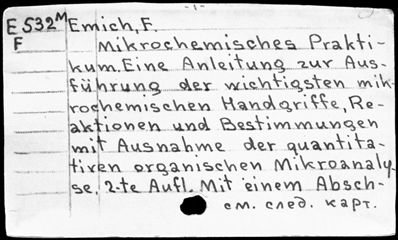 -1-
E 532 M Emich, F.
F Mikrochemisches Prakti-
kum. Eine Anleitung zur Aus-
führung der wichtigsten mik-
rochemischen Handgriffe, Re-
aktionen und Bestimmungen
mit Ausnahme der quantita-
tiven organischen Mikroanaly-
se. 2-te Aufl. Mit einem Absch-
см. след. карт.